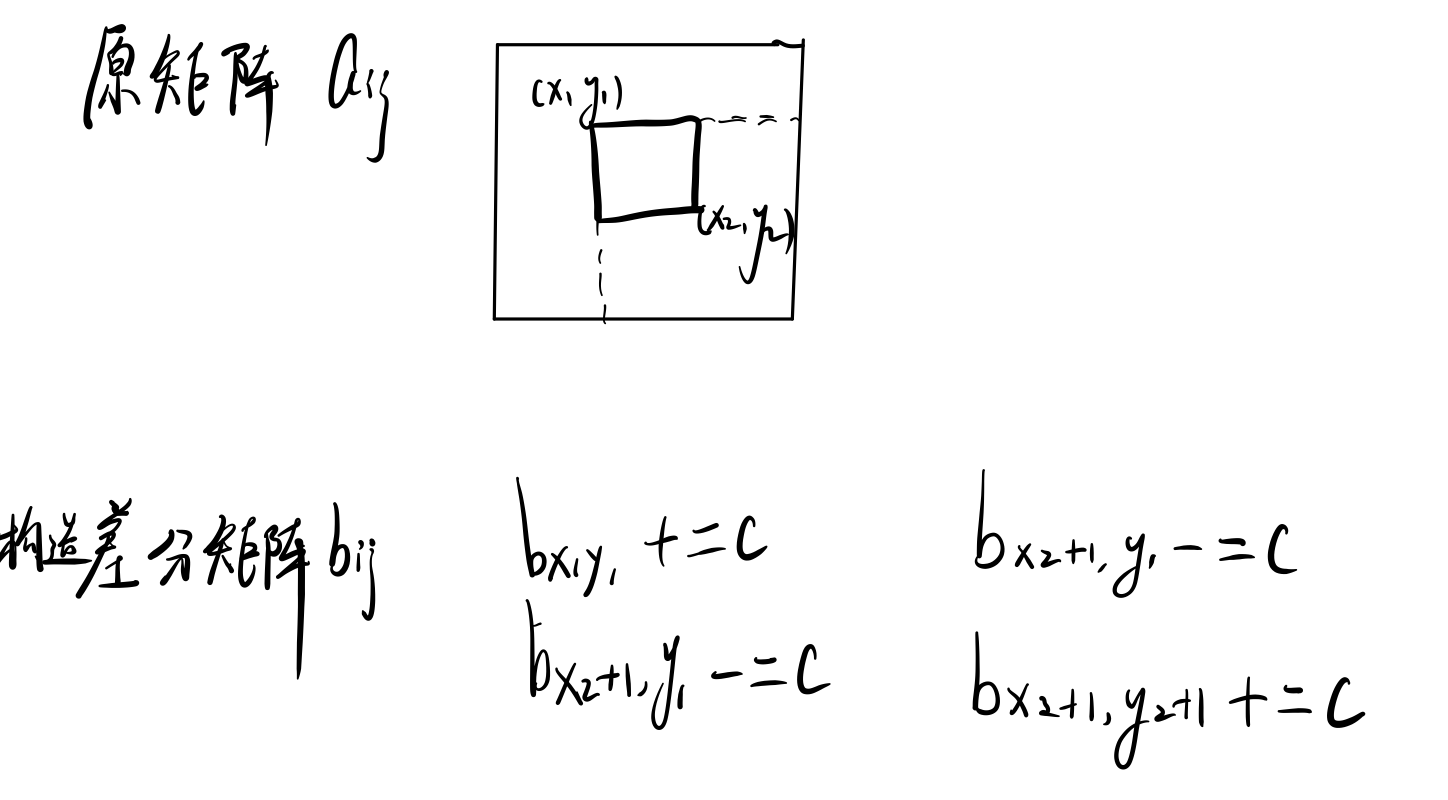 原矩阵 aij
(x1 y1)
(x2, y2)
构造差分矩阵 bij
bx1y1 +=c
bx2+1, y1 -=c
bx2+1, y1 -=c
bx2+1, y2+1 +=c